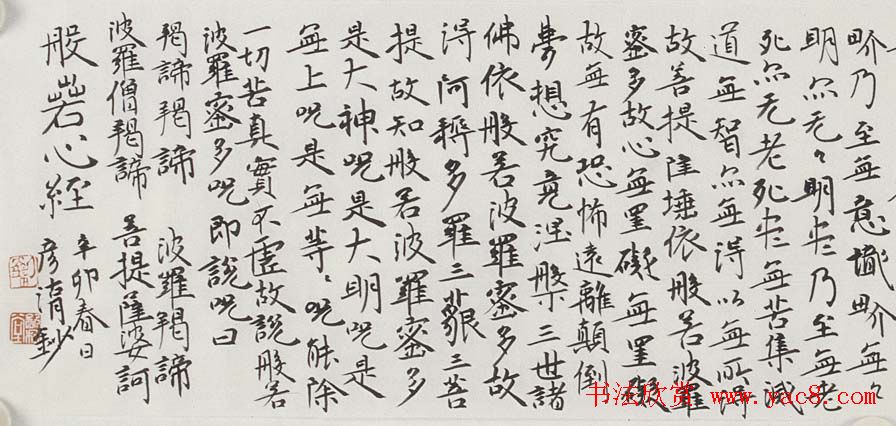 畍乃至無意識畍無々
明亦无々明盡乃至無老
死亦无老死盡無苦集滅
道無智亦無得以無所得
故菩提薩埵依般若波羅
蜜多故心無罣礙無罣礙
故無有恐怖遠離顛倒
夢想究竟涅槃三世諸
佛依般若波羅蜜多故
得阿耨多羅三藐三菩
提故知般若波羅蜜多
是大神呪是大明呪是
無上呪是無等々呪能除
一切苦真實不虛故說般若
波羅蜜多呪即說呪曰
羯諦羯諦 波羅羯諦
波羅僧羯諦 菩提薩婆訶
般若心經
辛卯春日
彦 鈔
书法欣赏 www.yac8.com